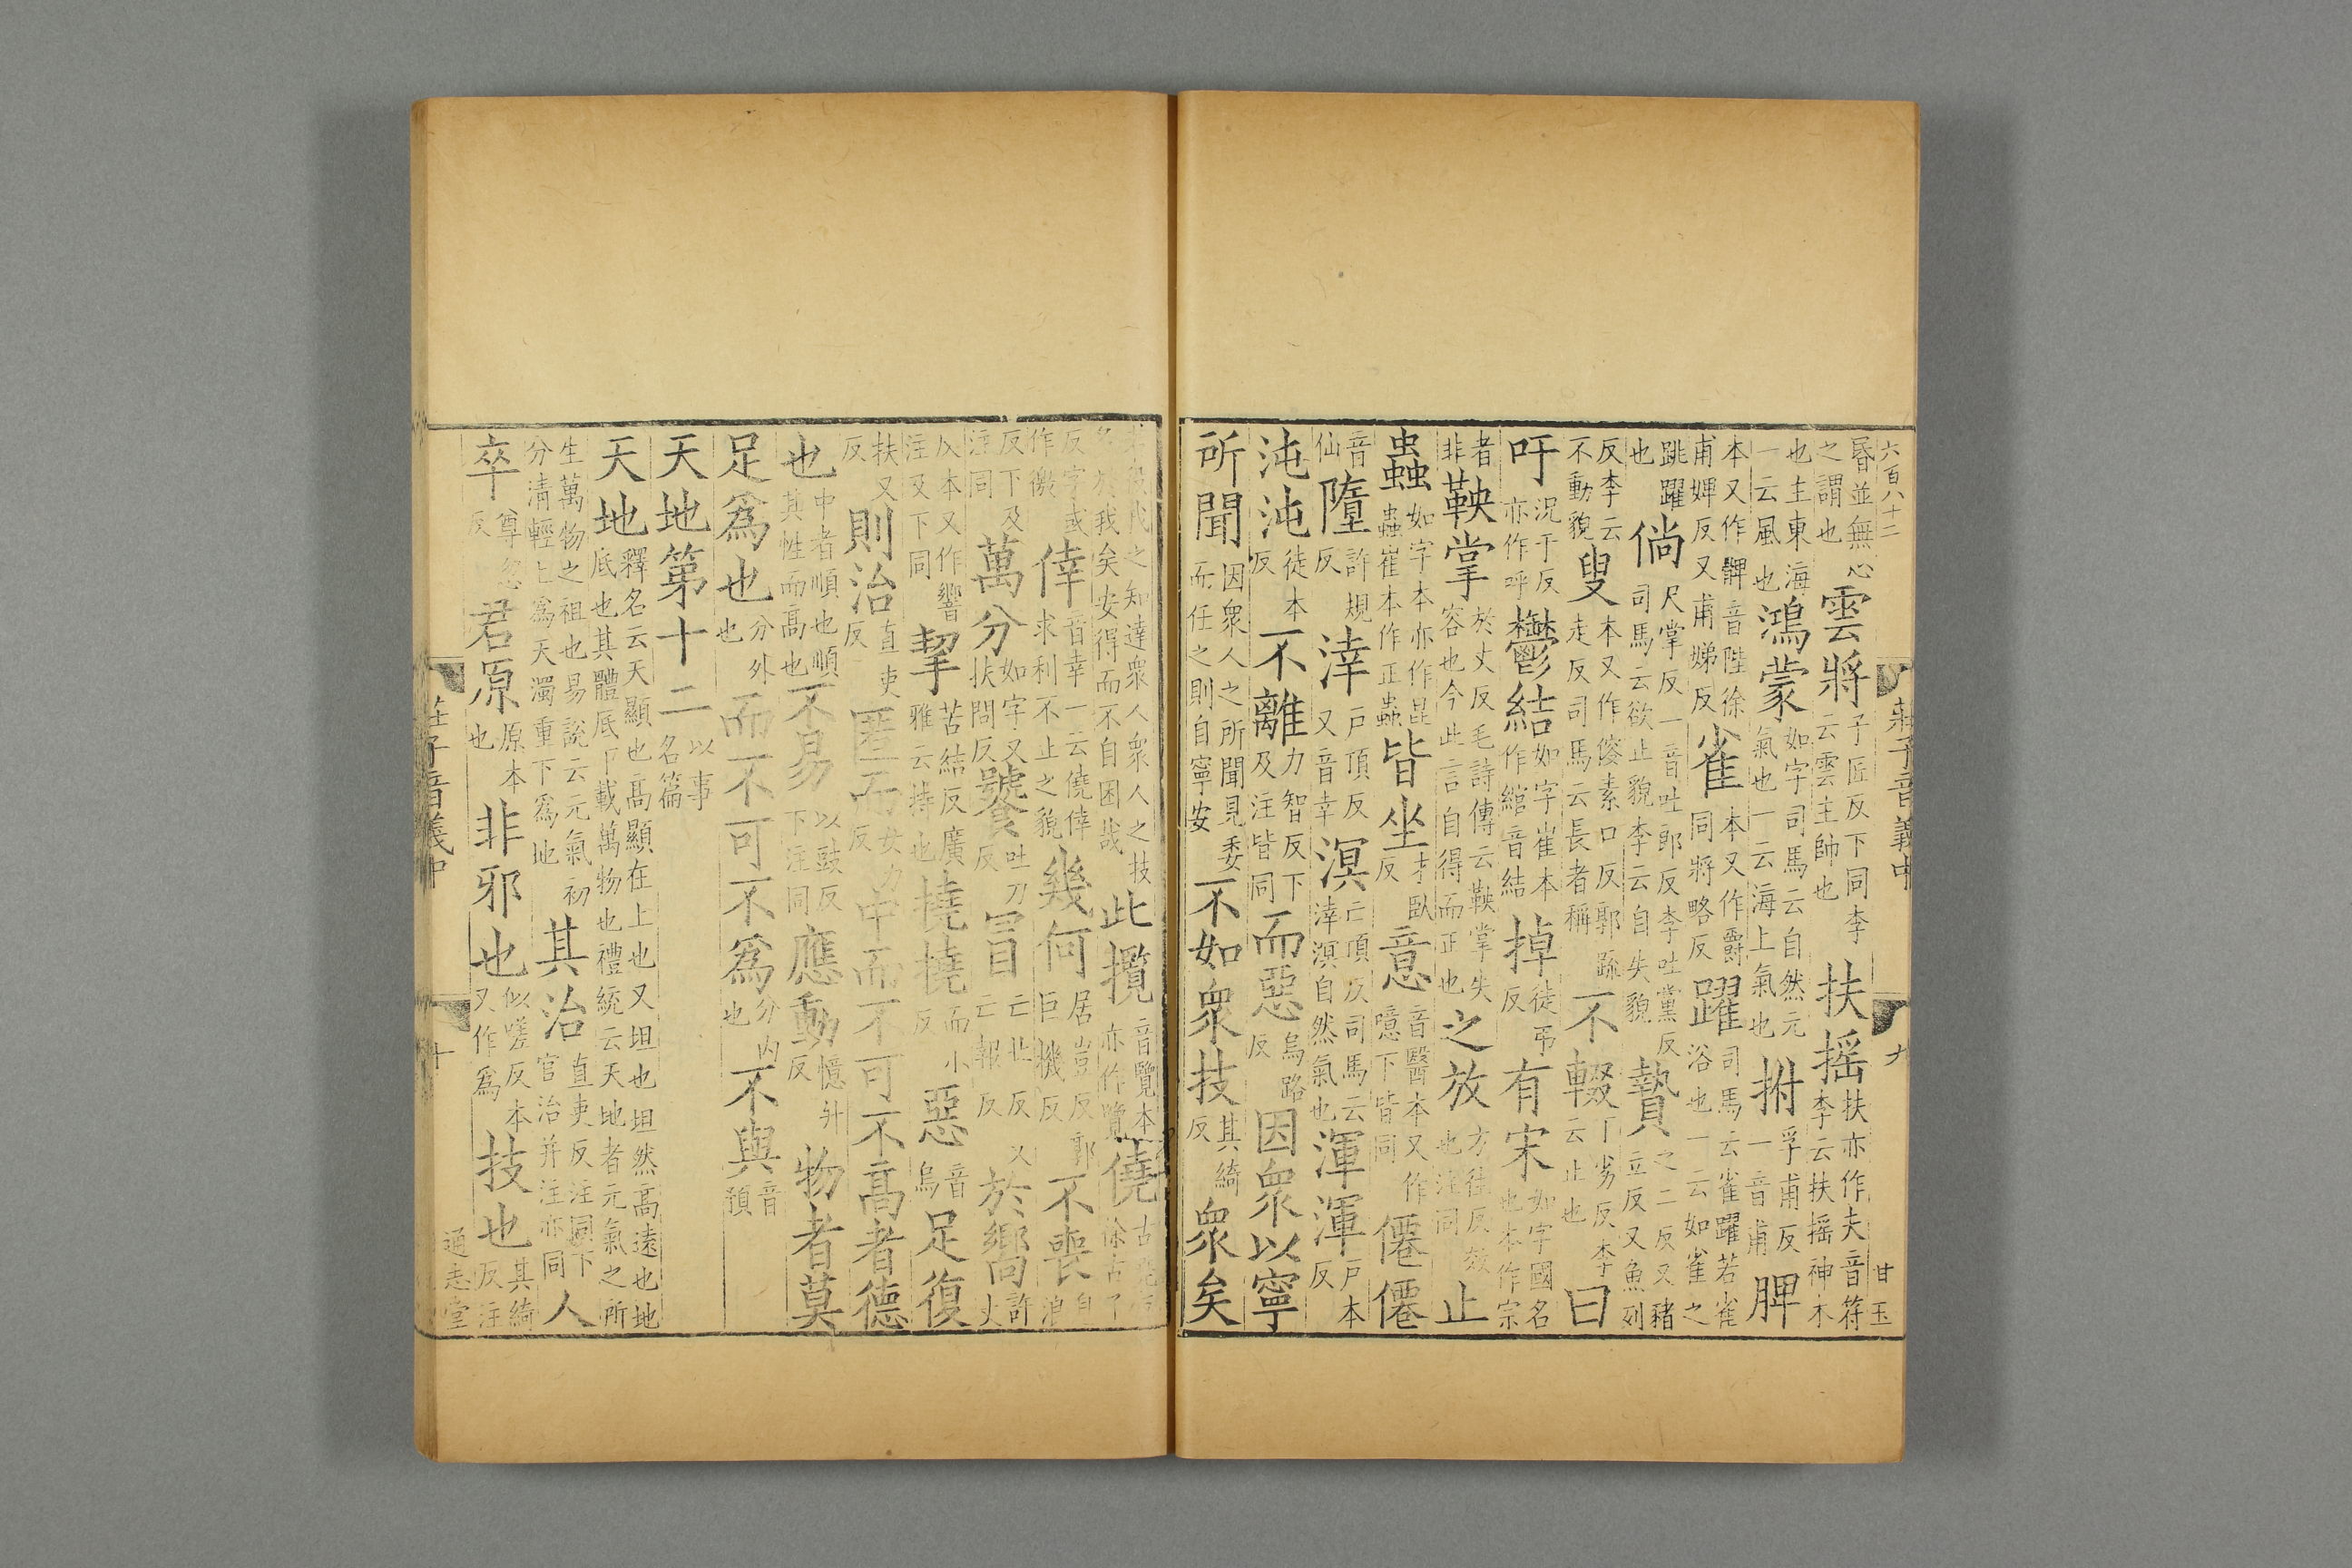 六百八十二 莊子音義中 九 甘玉
昬並無心之謂也雲將子匠反下同李云雲主帥也扶搖扶亦作夫音符李云扶搖神木
也主東海一云風也鴻蒙如字司馬云自然元氣也一云海上氣也拊孚甫反一音甫脾
本又作髀音陛徐甫婢反又甫娣反雀本又作爵同將略反躍司馬云雀躍若雀浴也一云如雀之
跳躍也倘尺掌反一音吐郎反李吐黨反司馬云欲止貌李云自失貌贄之二反又豬立反又魚列
反李云不動貌叟本又作傁素口反郭疏走反司馬云長者稱不輟丁劣反李云止也曰
吁況于反亦作呼鬱結如字崔本作綰音結掉徒弔反有宋如字國名也本作宗
者非鞅掌於丈反毛詩傳云鞅掌失容也今此言自得而正也之放方往反效也注同止
蟲如字本亦作昆蟲崔本作正蟲皆坐才臥反意音醫本又作噫下皆同僊僊
音仙墮許規反涬戶頂反又音幸溟亡頂反司馬云涬溟自然氣也渾渾戶本反
沌沌徒本反不離力智反下及注皆同而惡烏路反因衆以寧
所聞因衆人之所聞見委而任之則自寧安不如衆技其綺反衆矣
之知達衆人衆人之技多於我矣安得而不自困哉此攬音覽本亦作覽僥古堯反徐古了
反字或作徼倖音幸一云僥倖求利不止之貌幾何居豈反郭巨機反不喪息浪
反下及注同萬分如字又扶問反饕吐刀反冒亡北反又亡報反於嚮許丈
反本又作響注及下同挈苦結反廣雅云持也撓撓而小反惡音烏足復
扶又反則治直吏反匿而女力反中而不可不高者德
也中者順也順其性而高也不易以豉反下注同應動憶升反物者莫
足爲也分外也而不可不爲分內也不與音預
天地第十二以事名篇
天地釋名云天顯也高顯在上也又坦也坦然高遠也地底也其體底下載萬物也禮統云天地者元氣之所
生萬物之祖也易說云元氣初分清輕上爲天濁重下爲地其治直吏反注同下官治并注亦同人
卒尊忽反君原原本也非邪也似嗟反本又作爲技也其綺反注
莊子音義中 十 通志堂